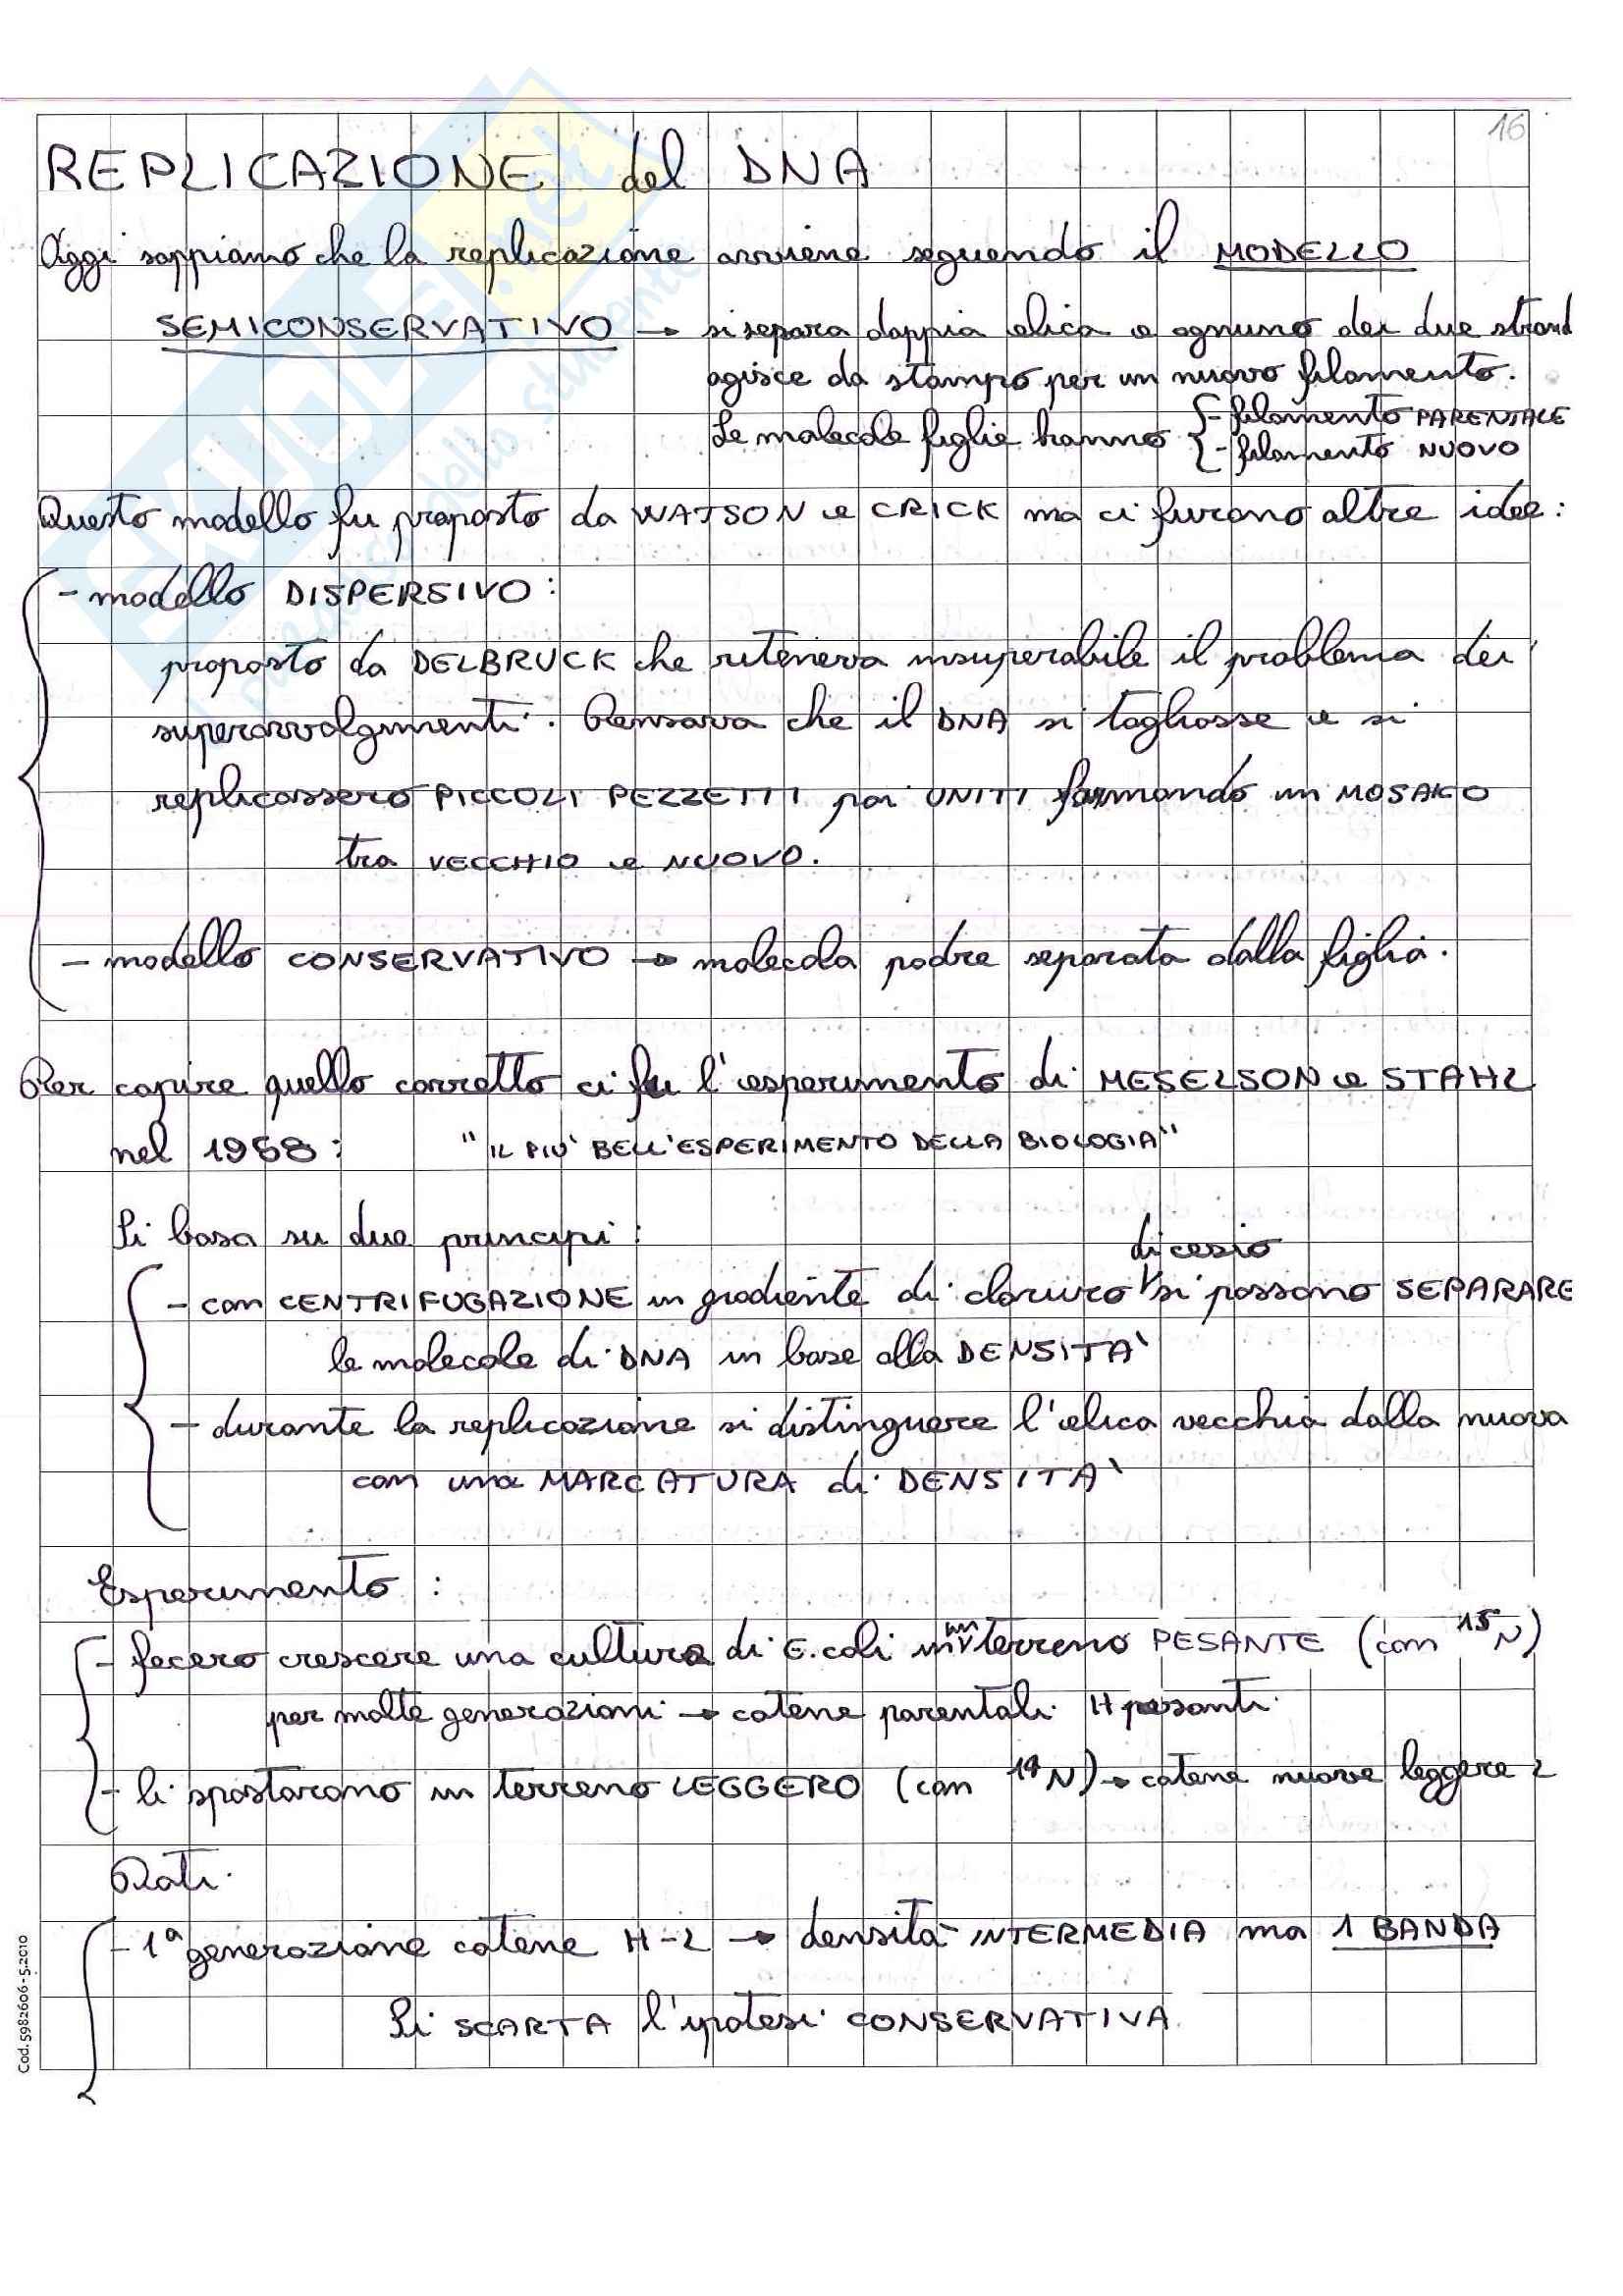 16
REPLICAZIONE del DNA
Oggi sappiamo che la replicazione avviene seguendo il MODELLO
SEMICONSERVATIVO → si separa doppia elica e ognuno dei due strand
agisce da stampo per un nuovo filamento.
Le molecole figlie hanno { - filamento PARENTALE
- filamento NUOVO
Questo modello fu proposto da WATSON e CRICK ma ci furono altre idee:
- modello DISPERSIVO:
proposto da DELBRUCK che riteneva insuperabile il problema dei
superavvolgimenti. Pensava che il DNA si tagliasse e si
replicassero PICCOLI PEZZETTI poi UNITI formando un MOSAICO
tra VECCHIO e NUOVO.
- modello CONSERVATIVO → molecola padre separata dalla figlia.
Per capire quello corretto ci fu l'esperimento di MESELSON e STAHL
nel 1958: "IL PIÙ BELL'ESPERIMENTO DELLA BIOLOGIA"
Si basa su due principi:
di cesio
- con CENTRIFUGAZIONE in gradiente di cloruro si possono SEPARARE
le molecole di DNA in base alla DENSITA'
- durante la replicazione si distinguere l'elica vecchia dalla nuova
con una MARCATURA di DENSITA'
Esperimento:
- fecero crescere una cultura di E.coli in un terreno PESANTE (con ¹⁵N)
per molte generazioni → catene parentali H pesanti
- li spostarono in terreno LEGGERO (con ¹⁴N) → catene nuove leggere L
Dati
- 1ª generazione catene H-L → densità INTERMEDIA ma 1 BANDA
Si SCARTA l'ipotesi CONSERVATIVA.
Cod. 5982606 - 5.2010